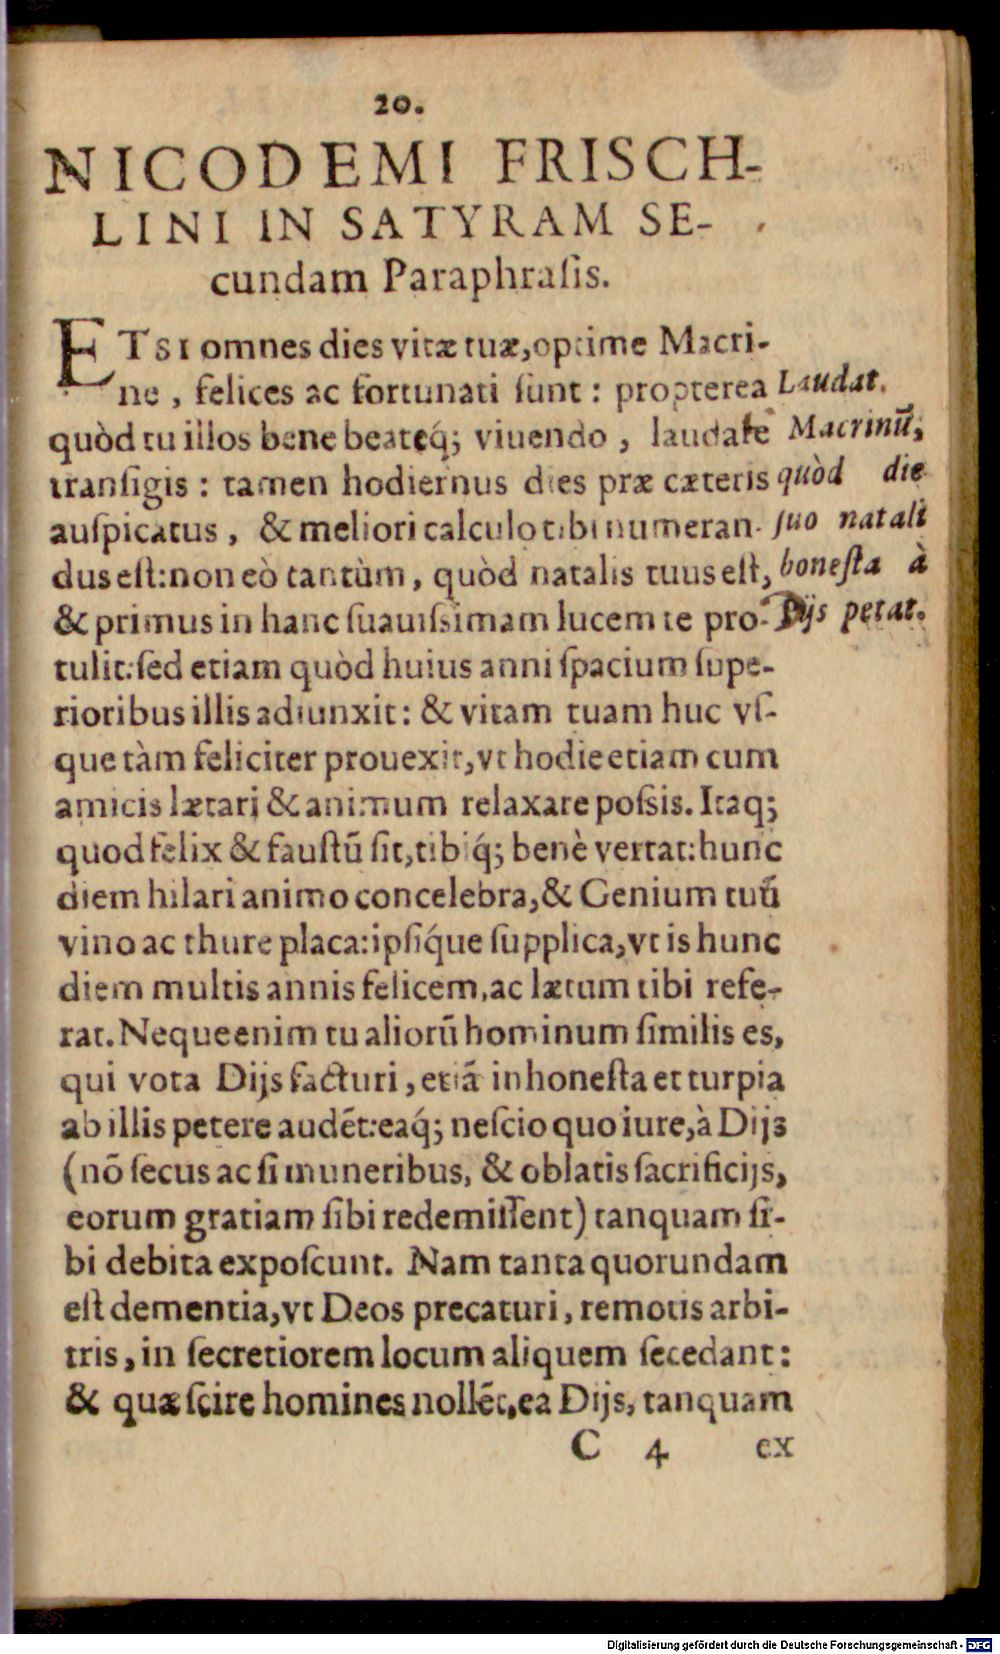 20.
NICODEMI FRISCH-
LINI IN SATYRAM SE-
cundam Paraphraſis.
ETSI omnes dies vitæ tuæ, optime Macri-
ne, felices ac fortunati ſunt: propterea
quòd tu illos bene beateq́; viuendo, laudate
tranſigis: tamen hodiernus dies præ cæteris
auſpicatus, & meliori calculo tibi numeran-
dus eſt: non eò tantùm, quòd natalis tuus eſt,
& primus in hanc ſuauiſsimam lucem te pro-
tulit: ſed etiam quòd huius anni ſpacium ſupe-
rioribus illis adiunxit: & vitam tuam huc vſ-
que tàm feliciter prouexit, vt hodie etiam cum
amicis lætari & animum relaxare poſsis. Itaq;
quod felix & fauſtū ſit, tibiq́; benè vertat: hunc
diem hilari animo concelebra, & Genium tuū
vino ac thure placa: ipſiq́ue ſupplica, vt is hunc
diem multis annis felicem, ac lætum tibi refe-
rat. Neque enim tu aliorū hominum ſimilis es,
qui vota Dijs facturi, etiā inhoneſta et turpia
ab illis petere audēt: eaq́; neſcio quo iure, à Dijs
(nō ſecus ac ſi muneribus, & oblatis ſacrificijs,
eorum gratiam ſibi redemiſſent) tanquam ſi-
bi debita expoſcunt. Nam tanta quorundam
eſt dementia, vt Deos precaturi, remotis arbi-
tris, in ſecretiorem locum aliquem ſecedant:
& quæ ſcire homines nollēt, ea Dijs, tanquam
C 4 ex
Laudat.
Macrinū,
quòd die
ſuo natali
honeſta à
Dijs petat.
Digitalisierung gefördert durch die Deutsche Forschungsgemeinschaft - DFG